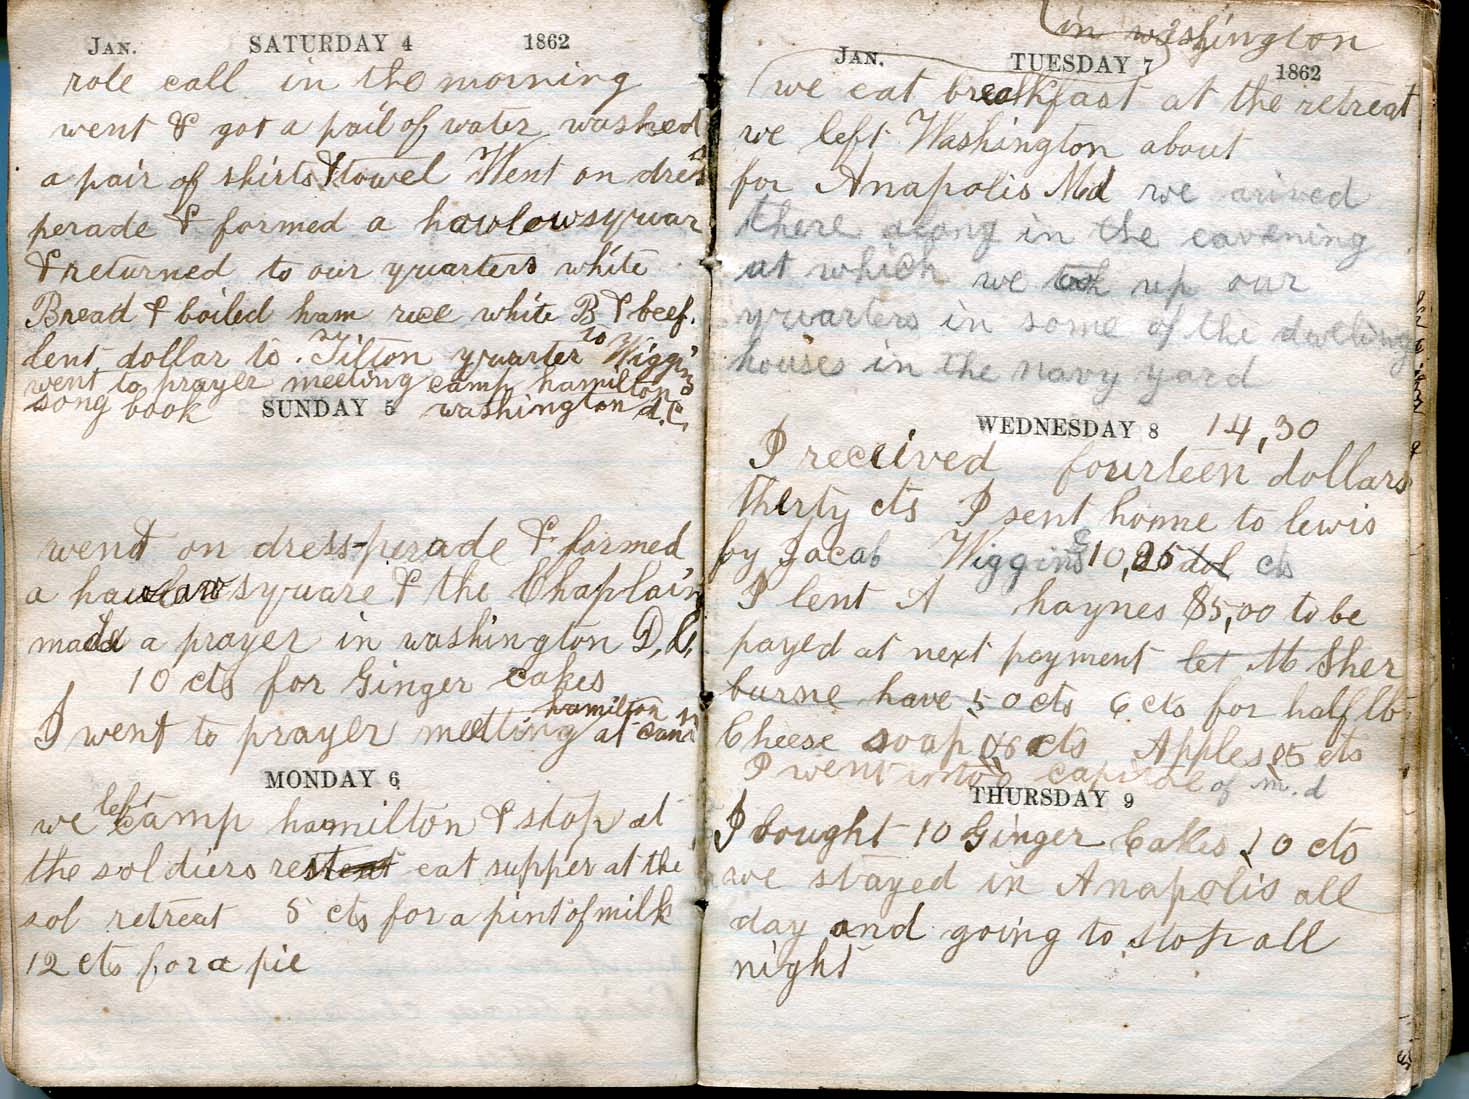 JAN. SATURDAY 4 1862
role call in the morning
went & got a pail of water washed
a pair of shirts & towel Went on dress
perade & formed a hawlowsyuar
& returned to our yuarters white
Bread & boiled ham rice white B & beef.
lent dollar to Tilton yuarter to Wiggins
went to prayer meeting camp hamilton
song book washington d.C.
SUNDAY 5
went on dress-perade & formed
a hawlaw syuare & the Chaplain
made a prayer in washington D,C,
10 cts for Ginger cakes
hamilton
I went to prayer meetting at cam
MONDAY 6
left
we camp hamilton & stop at
the soldiers rest eat supper at the
sol retreat 5 cts for a pint of milk
12 cts for a pie
in washington
JAN. TUESDAY 7 1862
we eat breakfast at the retreat
we left Washington about
for Anapolis Md we arived
there along in the eavening
at which we took up our
yuarters in some of the dwelling
houses in the navy yard
WEDNESDAY 8 14,30
I received fourteen dollars
thirty cts I sent home to lewis
by Jacob Wiggins $10,25 dol cts
I lent A haynes $5,00 to be
payed at next payment let M Sher
burne have 50 cts 6 cts for half lb
Cheese soap 06 cts Apples 05 cts
I went into capitol of m.d
THURSDAY 9
I bought 10 Ginger Cakes 10 cts
we stayed in Anapolis all
day and going to stop all
night